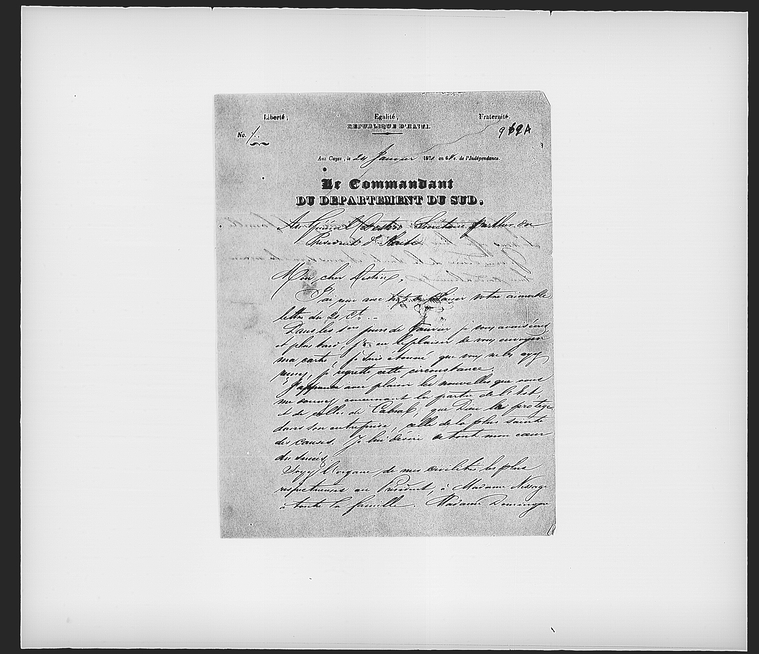 Liberté, Égalité, Fraternité
RÉPUBLIQUE D'HAITI.
No. 1.
962A
Aux Cayes, le 24 Janvier 1871 an 68e. de l'Indépendance.
Le Commandant
DU DEPARTEMENT DU SUD.
Au Général Secrétaire Particulier
Président d'Haiti
Mon cher
J'ai reçu avec de plaisir votre aimable
lettre du 21 Ct.
Dans les 1ers jours de Janvier je vous
et plus tard, j'ai eu le plaisir de vous envoyer
ma carte, je suis étonné que vous ne les ayez
reçus, je regrette cette circonstance.
J'apprends avec plaisir les nouvelles que vous
me donnez concernant la partie de l'Est
et de celle de Cabral, que Dieu les protège
dans son entreprise, celle de la plus sainte
des causes. Je lui désire de tout mon cœur
du succès
Soyez l'organe de mes civilités les plus
respectueuses au Président, à Madame Nissage
à toute la famille Madame Domingue